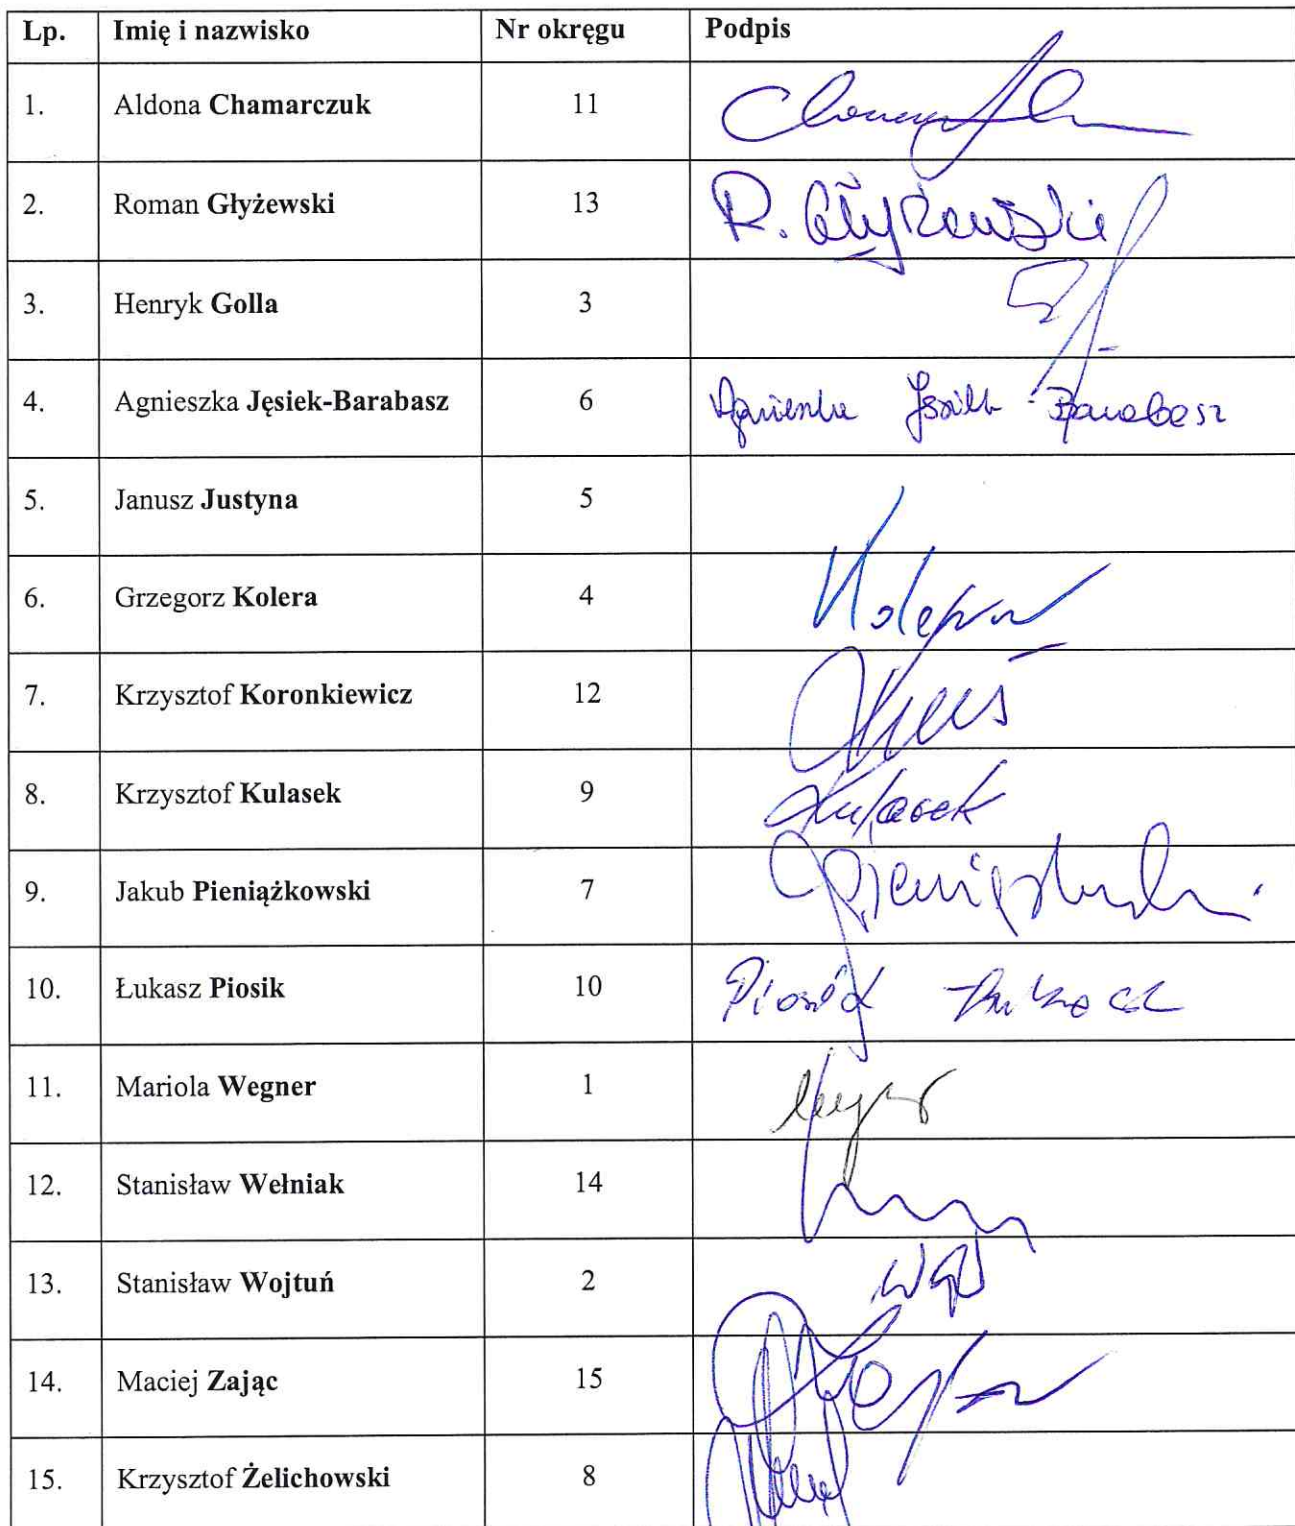 Lp. Imię i nazwisko Nr okręgu Podpis
1. Aldona Chamarczuk 11
2. Roman Głyżewski 13 R. Głyżewski
3. Henryk Golla 3
4. Agnieszka Jęsiek-Barabasz 6 Agnieszka Jęsiek-Barabasz
5. Janusz Justyna 5
6. Grzegorz Kolera 4 Kolera
7. Krzysztof Koronkiewicz 12
8. Krzysztof Kulasek 9 Kulasek
9. Jakub Pieniążkowski 7 Pieniążkowski
10. Łukasz Piosik 10 Piosik Łukasz
11. Mariola Wegner 1
12. Stanisław Wełniak 14
13. Stanisław Wojtuń 2
14. Maciej Zając 15
15. Krzysztof Żelichowski 8